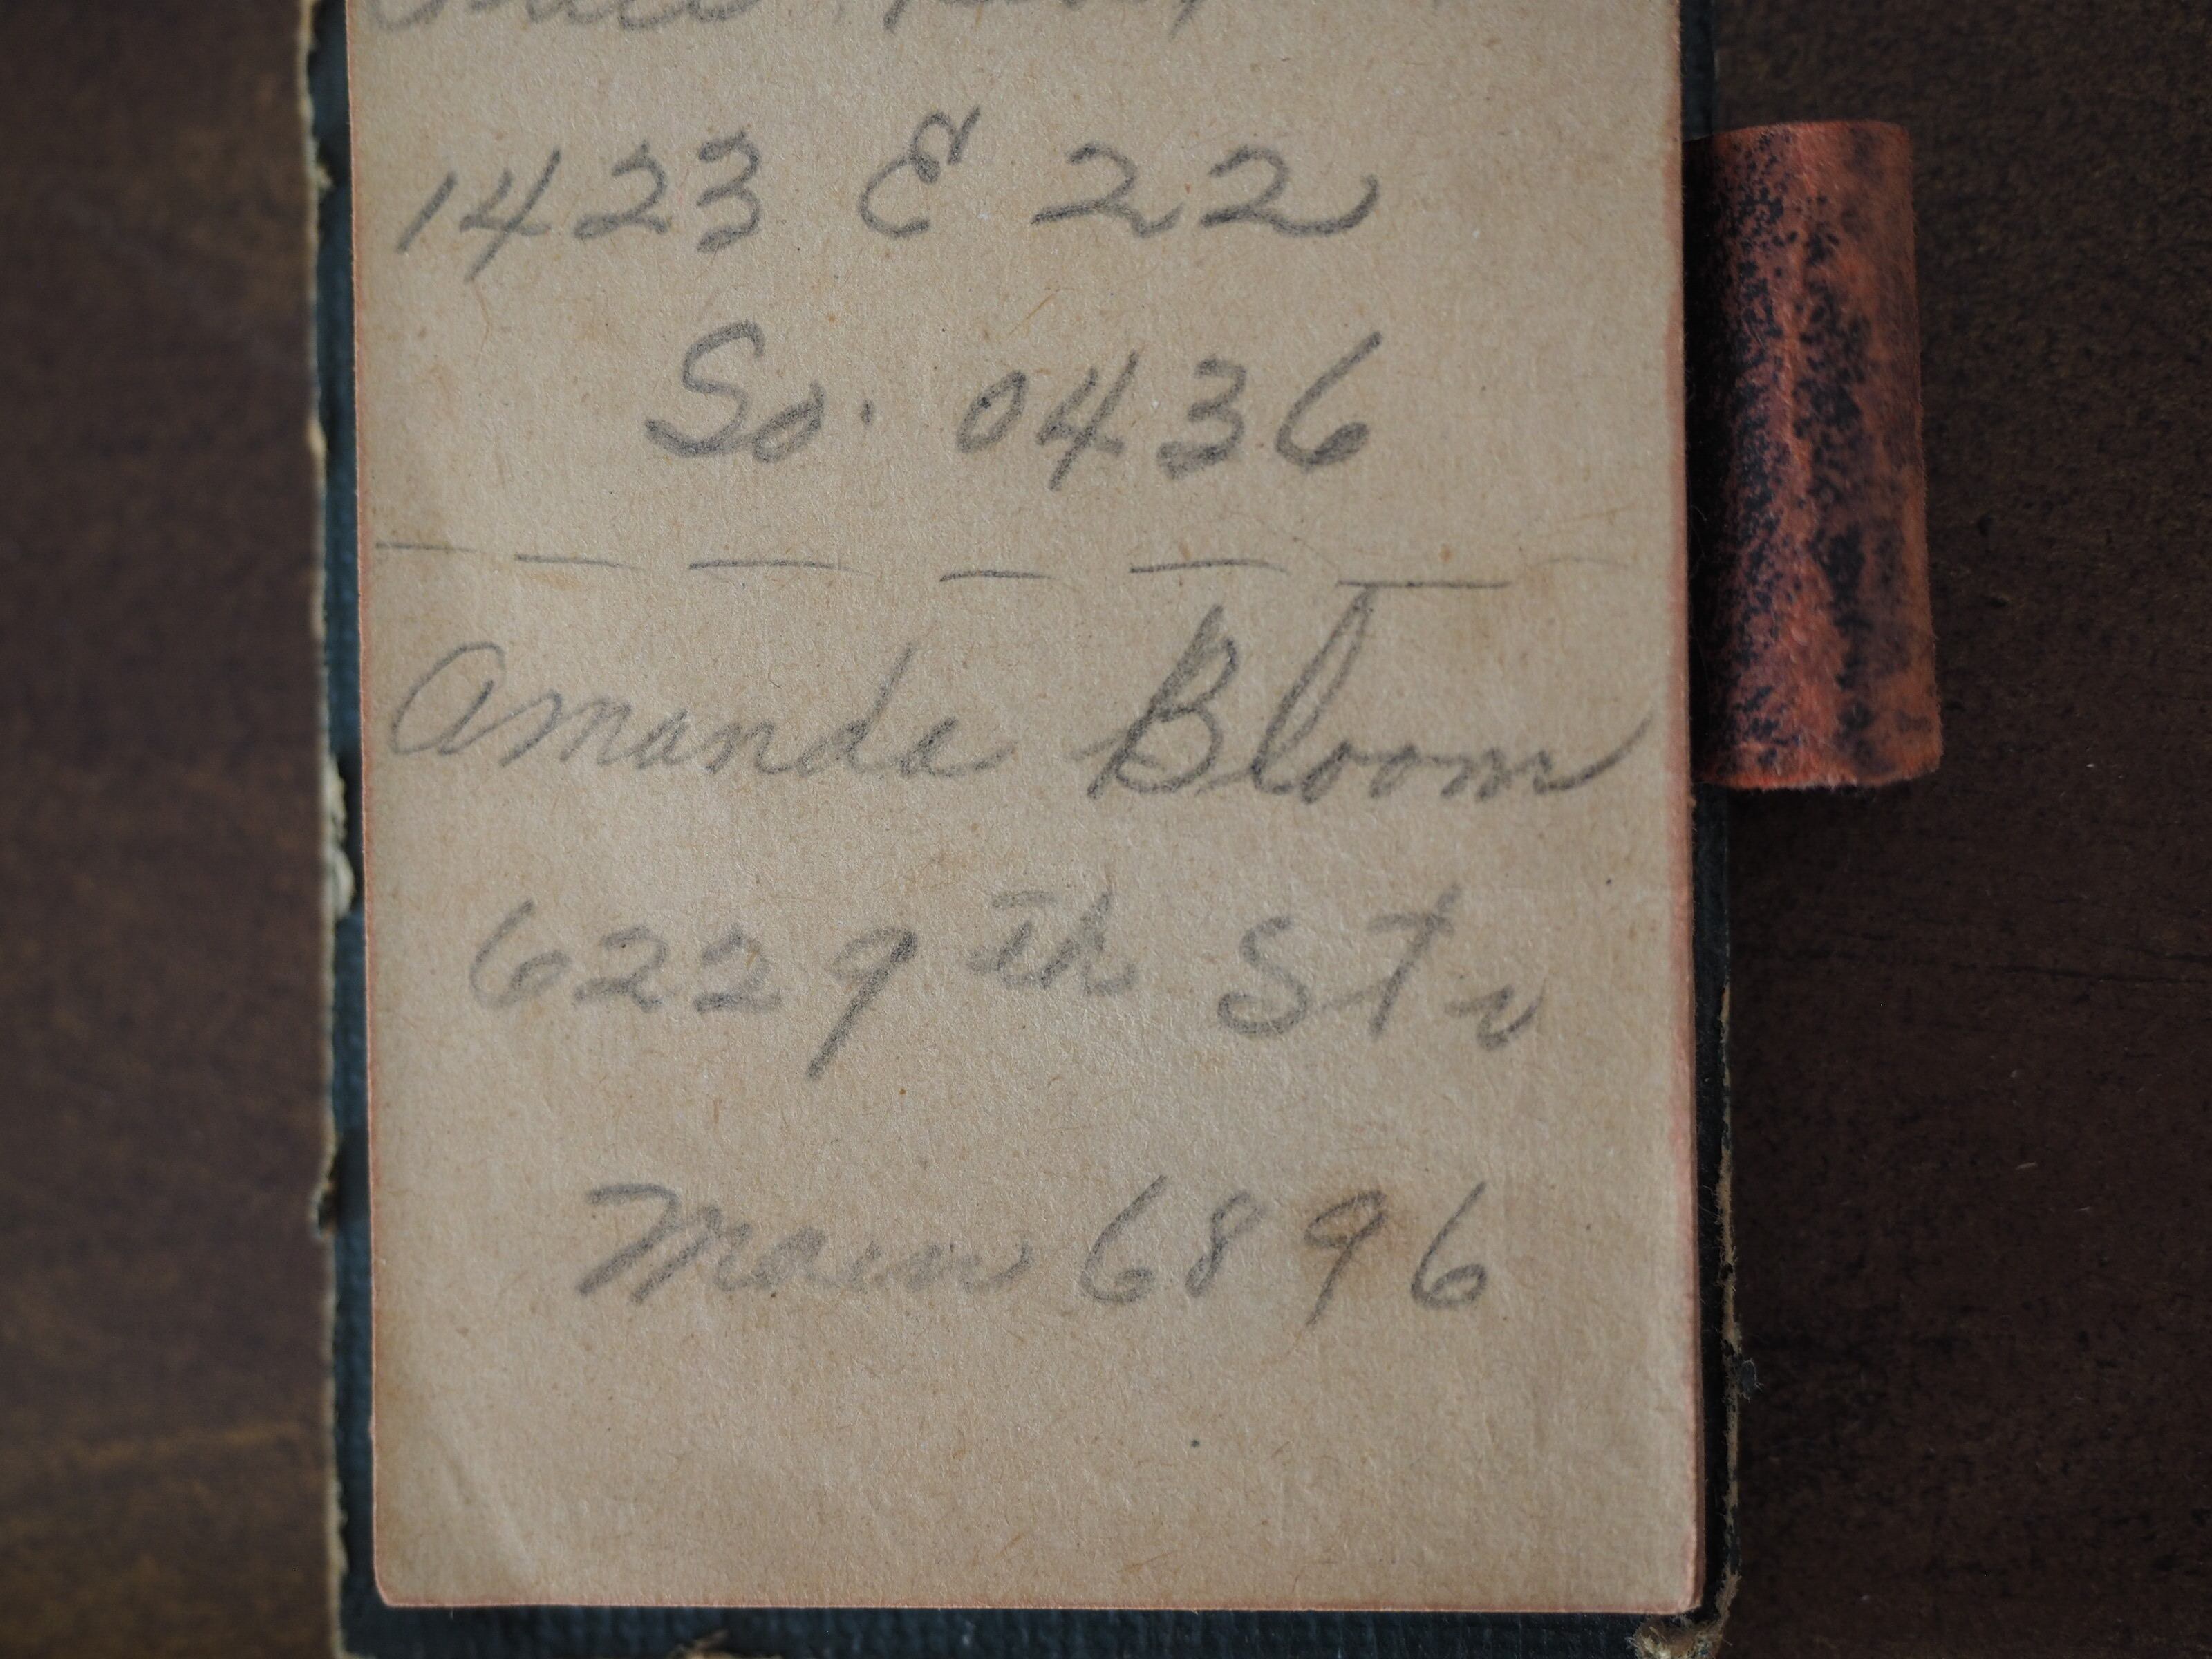 1423 E 22
So. 0436
Amanda Bloom
622 9th St
Main 6896